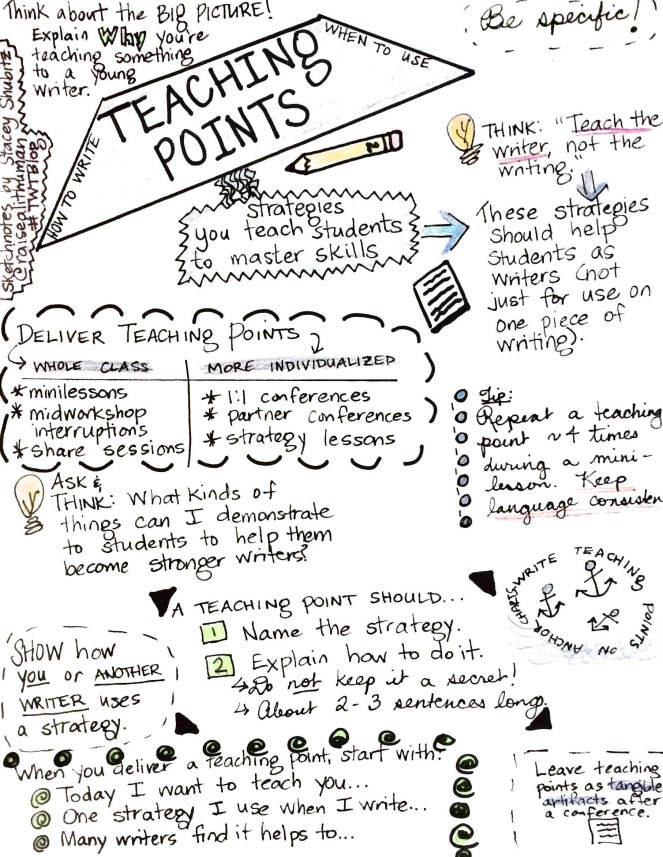 Think about the BIG PICTURE!
Explain Why you're
teaching something
to a young
writer.
Sketchnotes by Stacey Shubitz
@raisealithuman
#TWTBlog
HOW TO WRITE
TEACHING
POINTS
WHEN TO USE
Be specific!
THINK: "Teach the
writer, not the
writing."
Strategies
you teach students
to master skills
These strategies
should help
students as
writers (not
just for use on
one piece of
writing).
DELIVER TEACHING POINTS
WHOLE CLASS
* minilessons
* midworkshop
interruptions
* share sessions
MORE INDIVIDUALIZED
* 1:1 conferences
* partner conferences
* strategy lessons
Tip:
Repeat a teaching
point ~4 times
during a mini-
lesson. Keep
language consisten
ASK &
THINK: What kinds of
things can I demonstrate
to students to help them
become stronger writers?
WRITE TEACHING POINTS ON ANCHOR CHARTS
A TEACHING POINT SHOULD...
1 Name the strategy.
2 Explain how to do it.
↳ Do not keep it a secret!
↳ About 2-3 sentences long.
SHOW how
you or ANOTHER
WRITER uses
a strategy.
When you deliver a teaching point, start with:
@ Today I want to teach you...
@ One strategy I use when I write...
@ Many writers find it helps to...
Leave teaching
points as tangible
artifacts after
a conference.